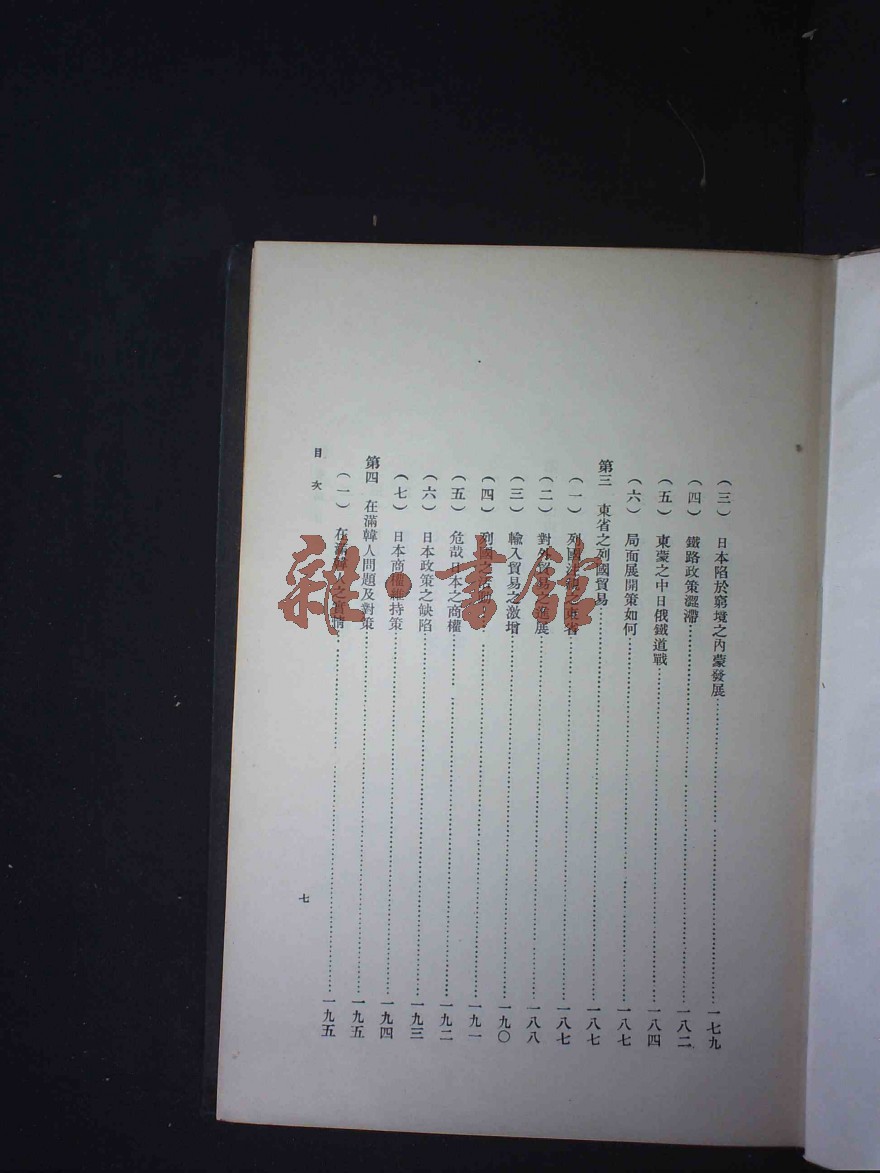 （三） 日本陷於窮境之內蒙發展……一七九
（四） 鐵路政策澀滯……一八二
（五） 東蒙之中日俄鐵道戰……一八四
（六） 局面展開策如何……一八七
第三 東省之列國貿易……一八七
（一） 列國注視之東省……一八七
（二） 對外貿易之進展……一八八
（三） 輸入貿易之激增……一九〇
（四） 列國之活動……一九一
（五） 危哉日本之商權……一九二
（六） 日本政策之缺陷……一九三
（七） 日本商權維持策……一九四
第四 在滿韓人問題及對策……一九五
（一） 在滿韓人之實情……一九五
目次
七
雜·書館